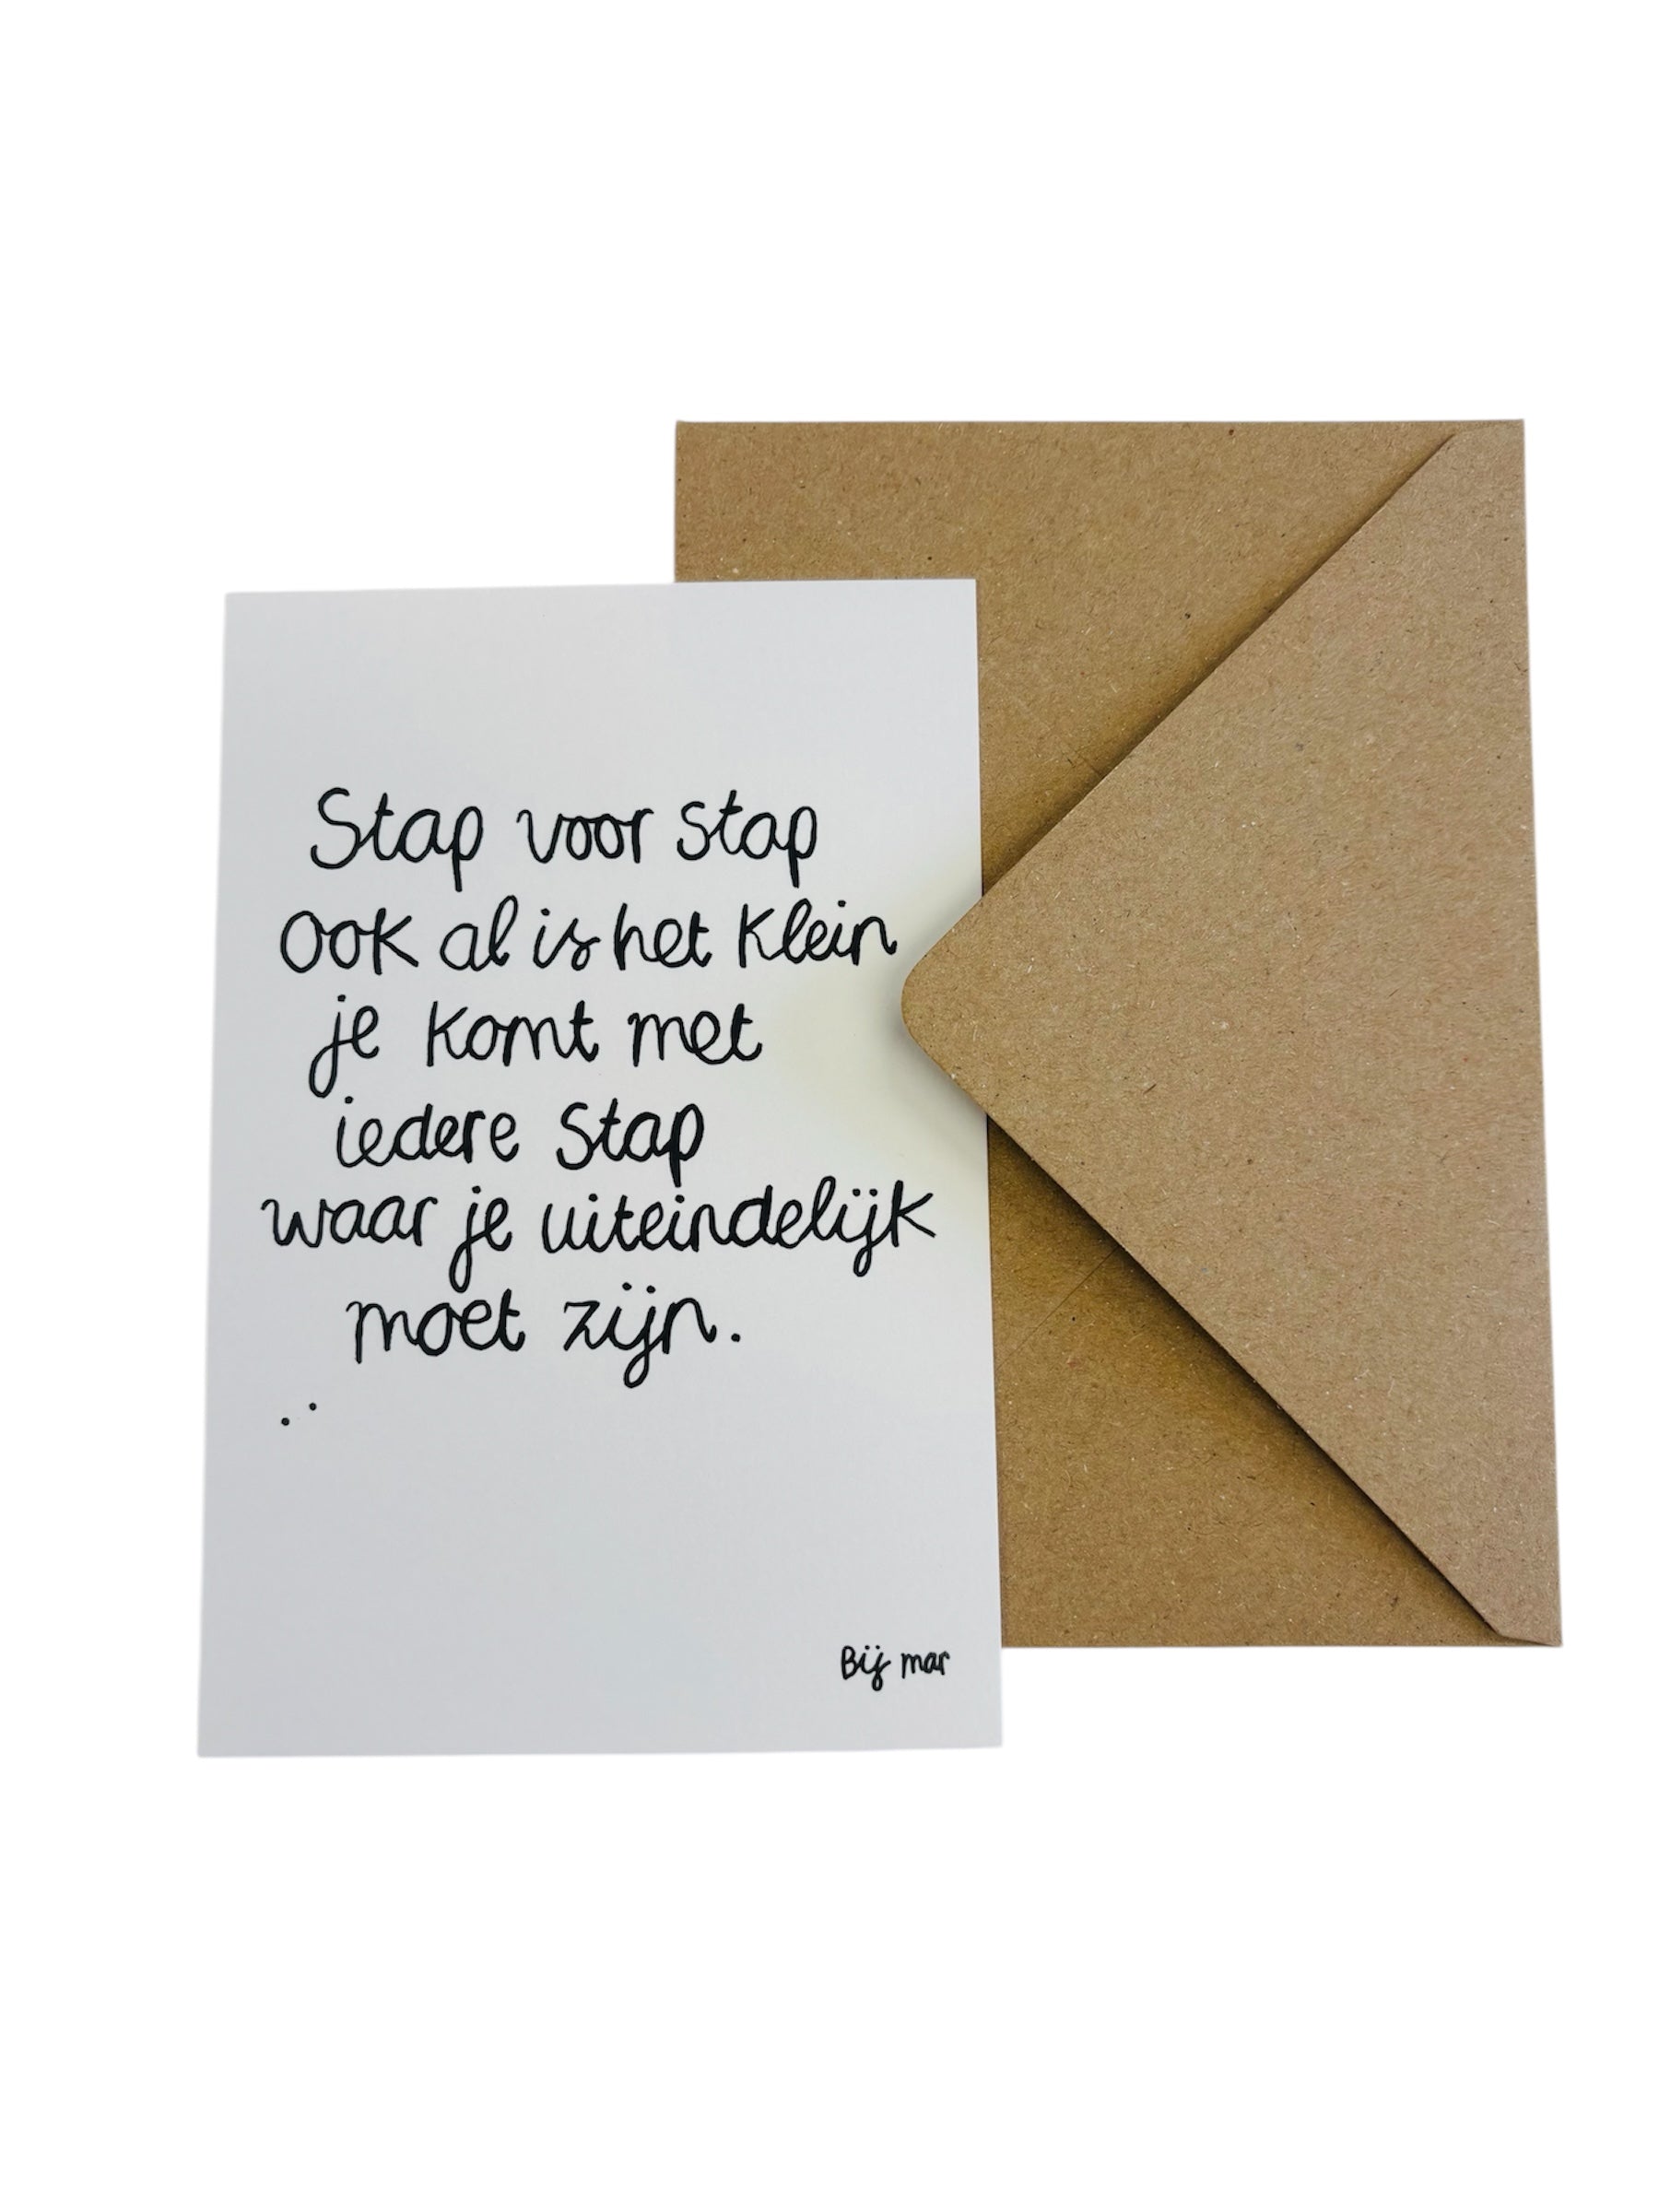 Stap voor stap
ook al is het klein
je komt met
iedere stap
waar je uiteindelijk
moet zijn.
..
Bij mar